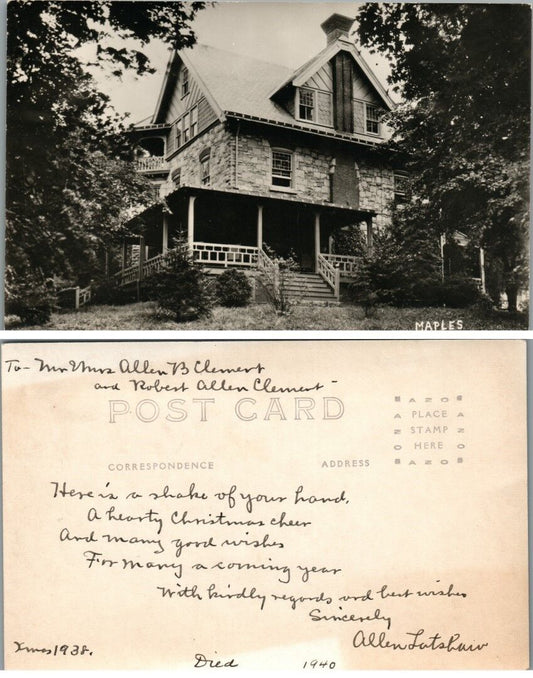 MAPLES
To- Mr & Mrs Allen B Clement
and Robert Allen Clement-
POST CARD
AZO
PLACE
STAMP
HERE
AZO
CORRESPONDENCE ADDRESS
Here is a shake of your hand,
A hearty Christmas cheer
And many good wishes
For many a coming year
With kindly regards and best wishes
Sincerely
Allen Latshaw
Xmas 1938.
Died 1940